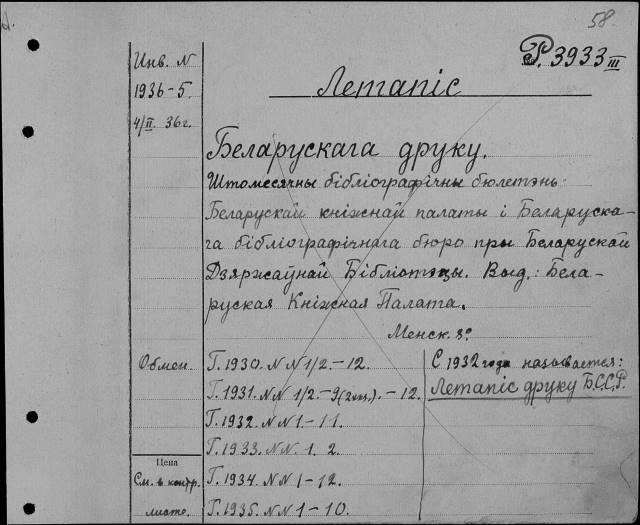 58.
P. 3933 III
Инв. N
1936-5.
4/II. 36г.
Летапіс
Беларускага друку.
Штомесячны бібліографічны бюлетэнь
Беларускай кніжнай палаты і Беларуска-
га бібліографічнага бюро пры Беларускай
Дзяржаўнай Бібліотэцы. Выд.: Бела-
руская Кніжная Палата.
Менск. 8º
Обмен.
Г. 1930. N N 1/2.-12.
Г. 1931. N N 1/2.-9(2экз.).-12.
Г. 1932. N N 1.-11.
Г. 1933. N N. 1. 2.
Г. 1934. N N 1-12.
Г. 1935. N N 1-10.
С 1932 года называется:
Летапіс друку Б.С.С.Р.
Цена
См. в контр.
листе.